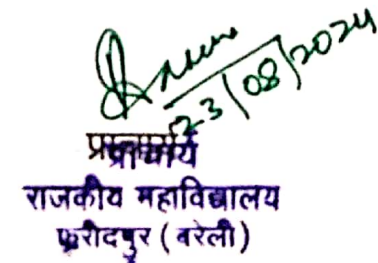 23/08/2024
प्राचार्य
राजकीय महाविद्यालय
फरीदपुर (बरेली)